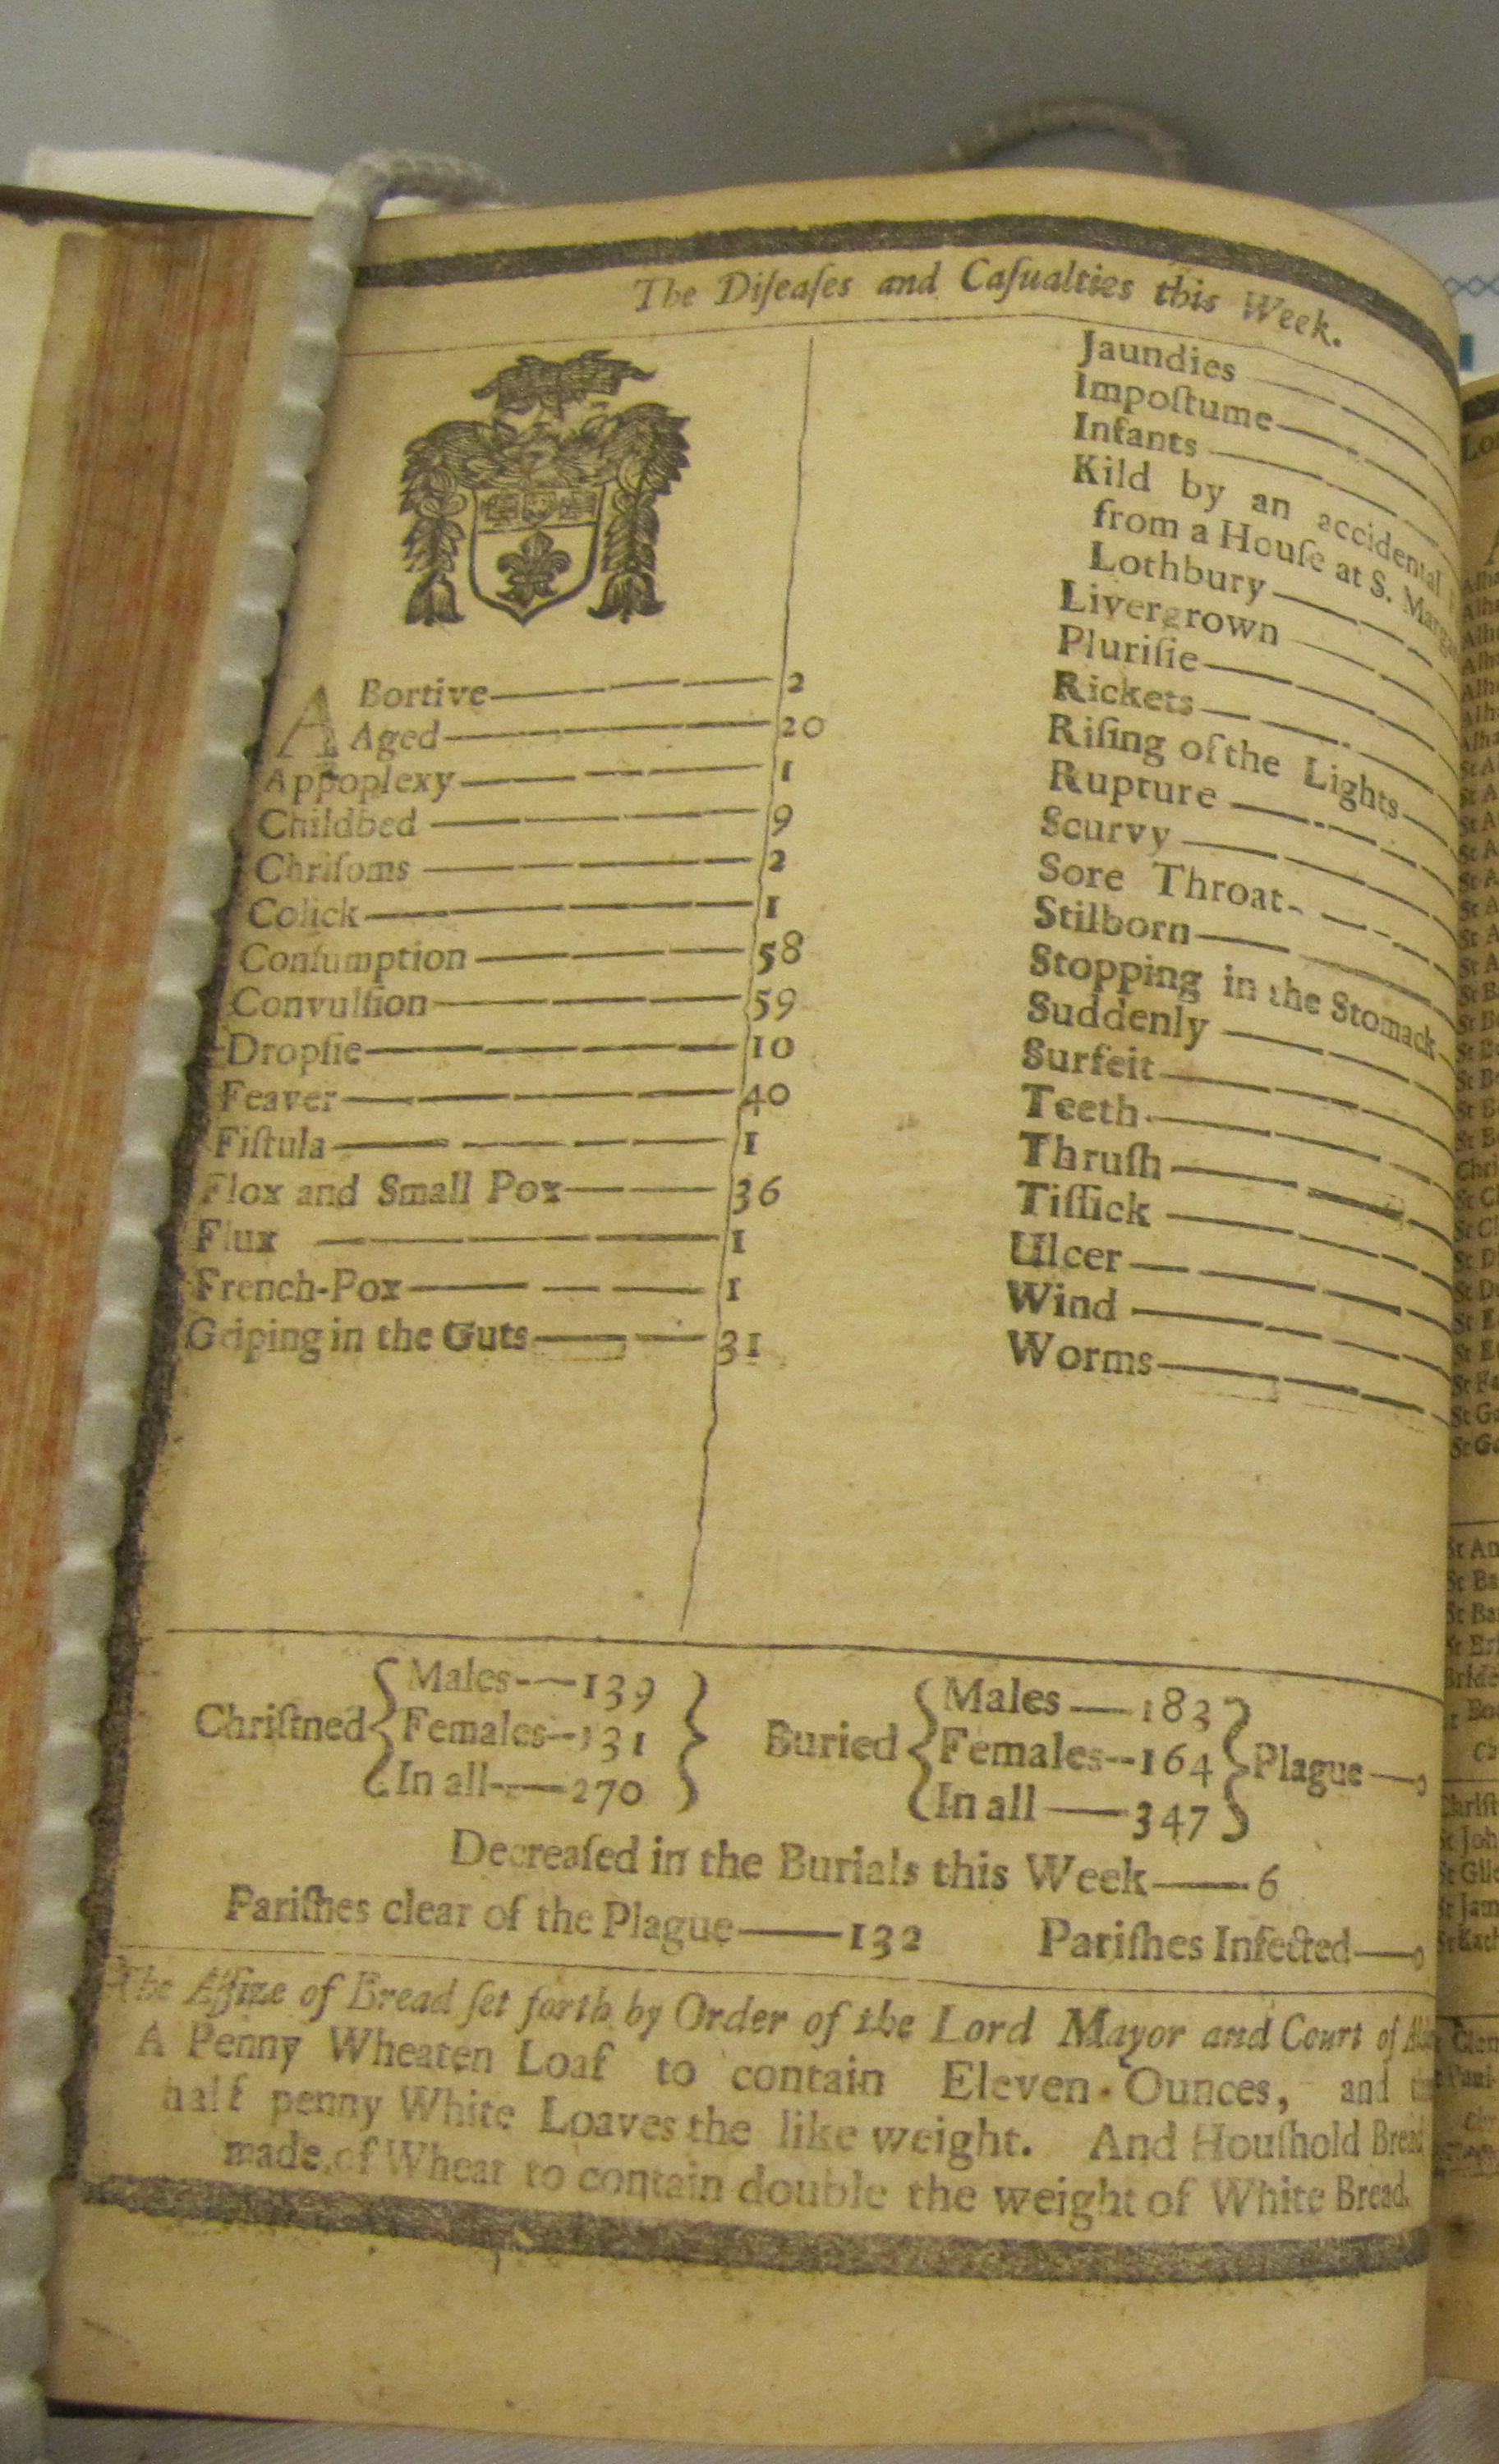 The Diſeaſes and Caſualties this Week.
ABortive 2
Aged 20
Appoplexy 1
Childbed 9
Chriſoms 2
Colick 1
Conſumption 58
Convulſion 59
Dropſie 10
Feaver 40
Fiſtula 1
Flox and Small Pox 36
Flux 1
French-Pox 1
Griping in the Guts 31
Jaundies
Impoſtume
Infants
Kild by an accidental
from a Houſe at S.
Lothbury
Livergrown
Pluriſie
Rickets
Riſing of the Lights
Rupture
Scurvy
Sore Throat
Stilborn
Stopping in the Stomack
Suddenly
Surfeit
Teeth
Thruſh
Tiſſick
Ulcer
Wind
Worms
Chriſtned { Males 139
Females 131
In all 270 }
Buried { Males 183
Females 164
In all 347 } Plague 0
Decreaſed in the Burials this Week 6
Pariſhes clear of the Plague 132 Pariſhes Infected 0
The Aſſize of Bread ſet forth by Order of the Lord Mayor and Court of
A Penny Wheaten Loaf to contain Eleven Ounces, and
half penny White Loaves the like weight. And Houſhold Bread
made of Wheat to contain double the weight of White Bread.